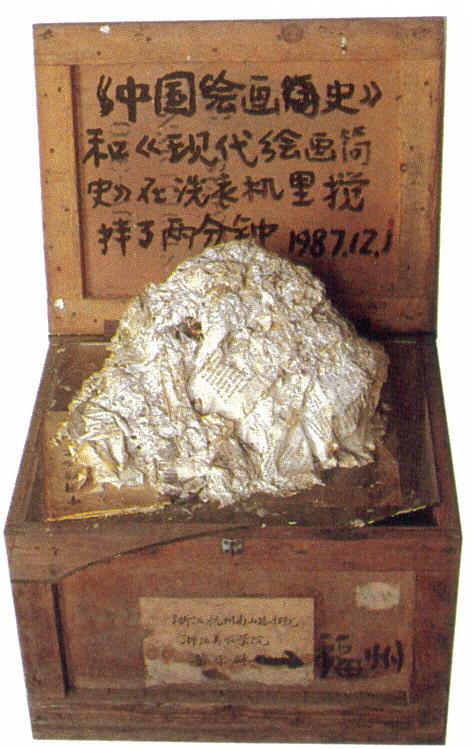 《中国绘画史》
和《现代绘画简
史》在洗衣机里搅
拌了两分钟 1987.12.1
浙江杭州南山路
浙江美术学院
黄永砅 → 福州